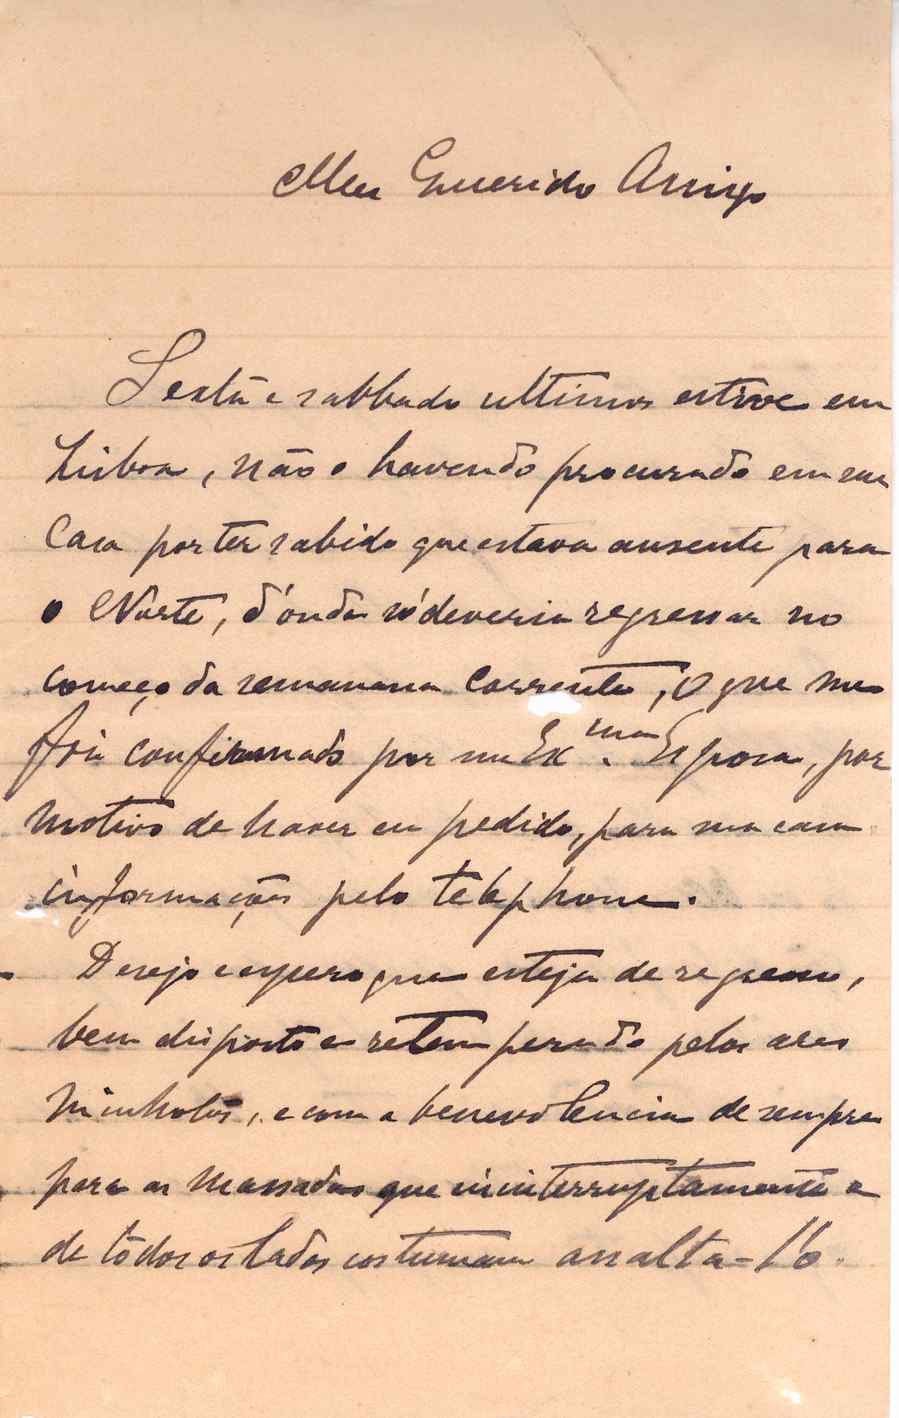 Meu Querido Amigo
Sexta e sabbado ultimos estive em
Lisboa, não o havendo procurado em sua
Casa por ter sabido que estava ausente para
o Norte, d'onde só deveria regressar no
começo da semana corrente, o que me
foi confirmado por sua Ex.ma Esposa, por
motivo de haver eu pedido, para sua casa
informações pelo telephone.
Desejo e espero que esteja de regresso,
bem disposto e retemperado pelos ares
minhotos, e com a benevolencia de sempre
para as massadas que ininterruptamente e
de tôdos os lados costumam assalta-l'o.